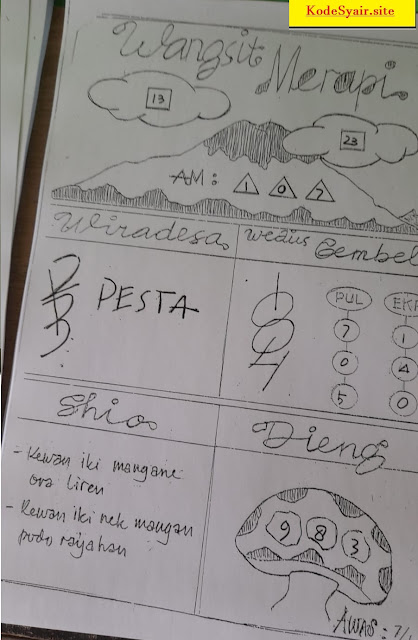 KodeSyair.site
Wangsit Merapi
13
23
AM: 1 0 7
Wiradesa
Wedus Gembel
PESTA
PUL
7
0
5
1
4
0
Shio
- Kewan iki mangane
ora liren
- Kewan iki nek mangan
podo rayahan
Dieng
9 8 3
AWAS: